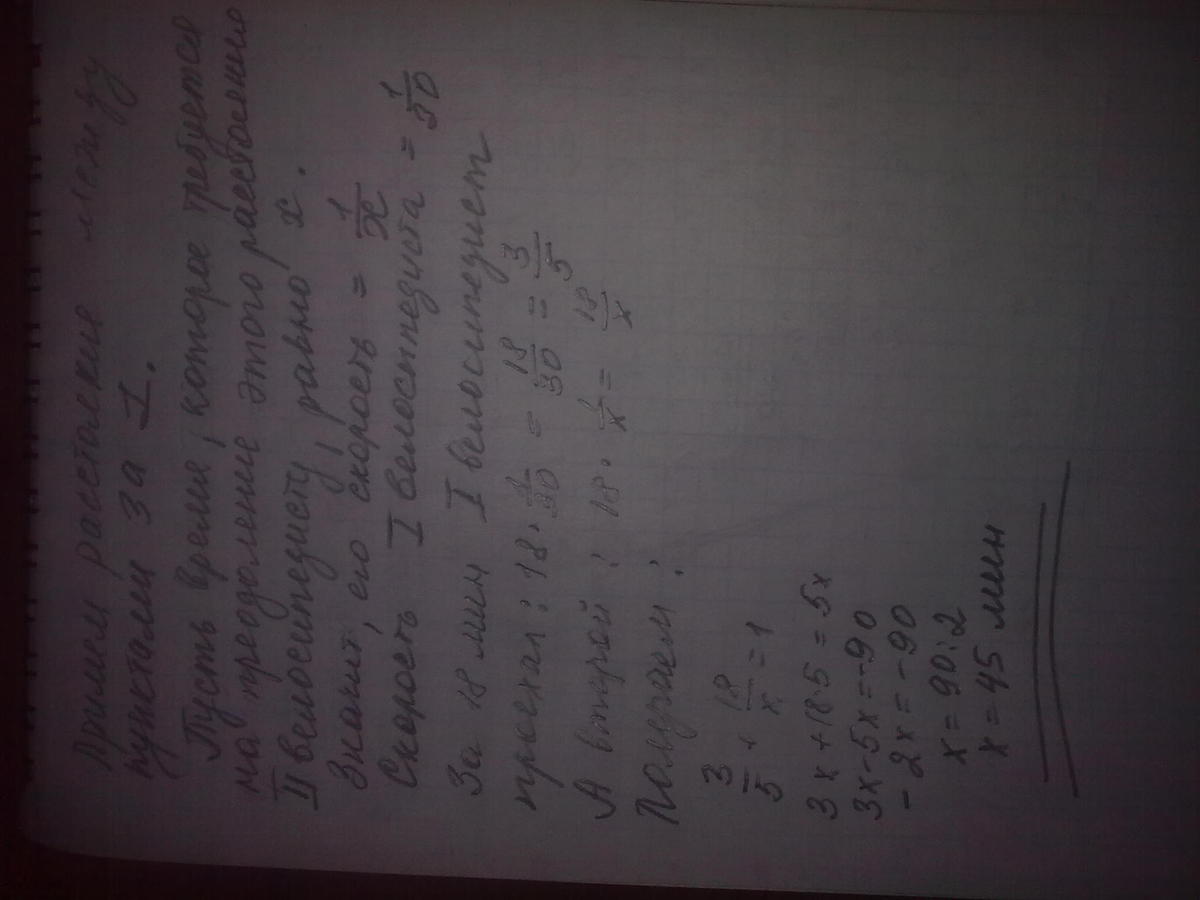 Примем расстояние между
пунктами за 1.
Пусть время, которое требуется
на преодоление этого расстояния
II велосипедисту, равно x.
Значит, его скорость = 1/x
Скорость I велосипедиста = 1/30
За 18 мин I велосипедист
проехал: 18 · 1/30 = 18/30 = 3/5
А второй: 18 · 1/x = 18/x
Получаем:
3/5 + 18/x = 1
3x + 18·5 = 5x
3x - 5x = -90
- 2x = -90
x = 90:2
x = 45 мин